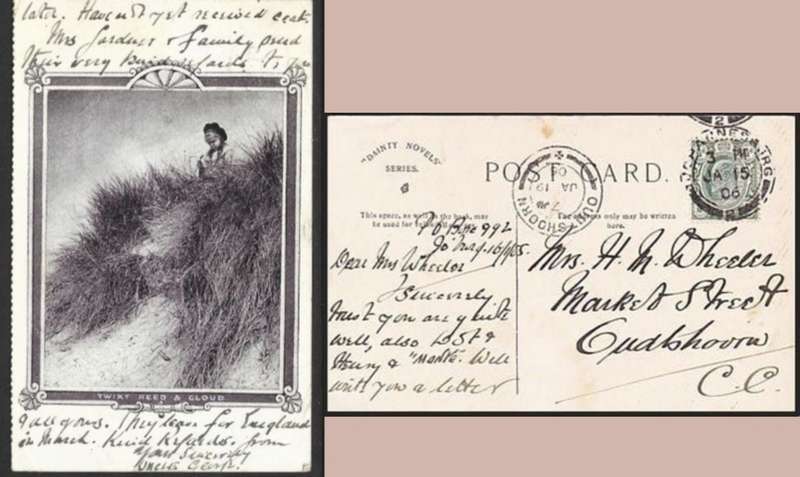 later. Have not yet received
Mrs Gardner & family send
their very kindest
TWIXT REED & CLOUD
& all yours. They leave for England
in March. Kind Regards. from
Yours Sincerely
"DAINTY NOVELS"
SERIES.
POST CARD.
This space, as well as the back, may
be used for
The address only may be written
here.
OUDTSHOORN
JA 19
06
JOHANNESBURG
3 PM
JA 15
06
2
P.O. Box 992
Jo'burg.
Dear Mrs Wheeler
Sincerely
trust you are quite
well, also
Henry &
Will
write you a letter
Mrs. H. N. Wheeler
Market Street
Oudtshoorn
C.C.